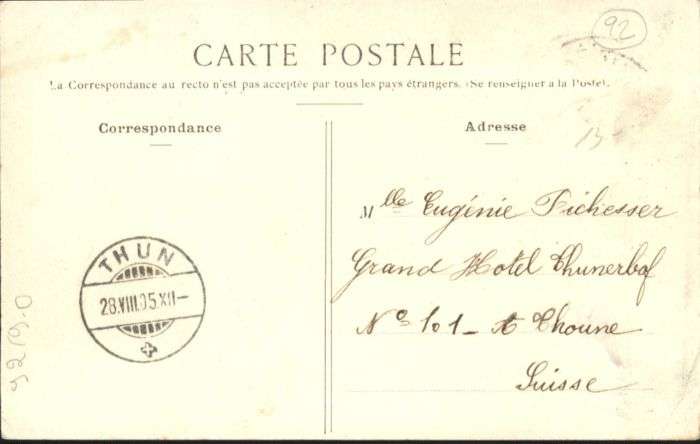 92
CARTE POSTALE
La Correspondance au recto n'est pas acceptée par tous les pays étrangers. (Se renseigner à la Poste).
Correspondance
Adresse
Mlle Eugénie Fichesser
Grand Hotel Thunerhof
Nº 101 - à Thoune
Suisse
THUN
28.VIII.05.XII-
9219-0